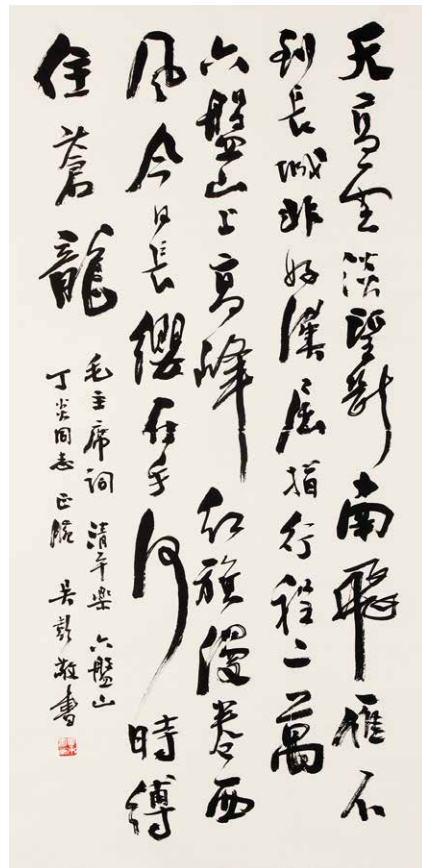 天高雲淡望斷南飛雁不
到長城非好漢屈指行程二萬
六盤山上高峰紅旗漫卷西
風今日長纓在手何時縛
住蒼龍
毛主席詞 清平樂 六盤山
丁炎同志正腕 吳彭敬書